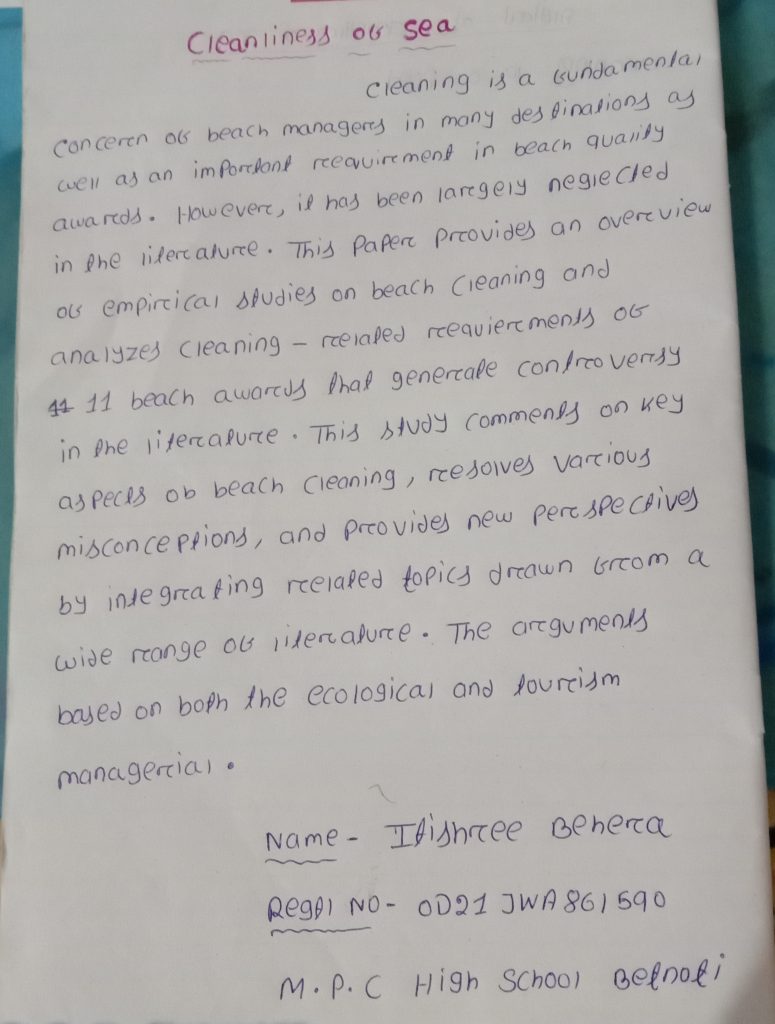 Cleanliness of sea
Cleaning is a fundamental
concern of beach managers in many destinations as
well as an important requirement in beach quality
awards. However, it has been largely neglected
in the literature. This Paper Provides an overview
of empirical studies on beach cleaning and
analyzes cleaning - related requierments of
11 11 beach awards that generate controversy
in the literature. This study comments on key
aspects of beach cleaning, resolves various
misconceptions, and provides new perspectives
by integrating related topics drawn from a
wide range of literature. The arguments
based on both the ecological and tourism
managerial.
Name - Itishree Behera
Regd NO - OD21 JWA861590
M.P.C High School Betnoti